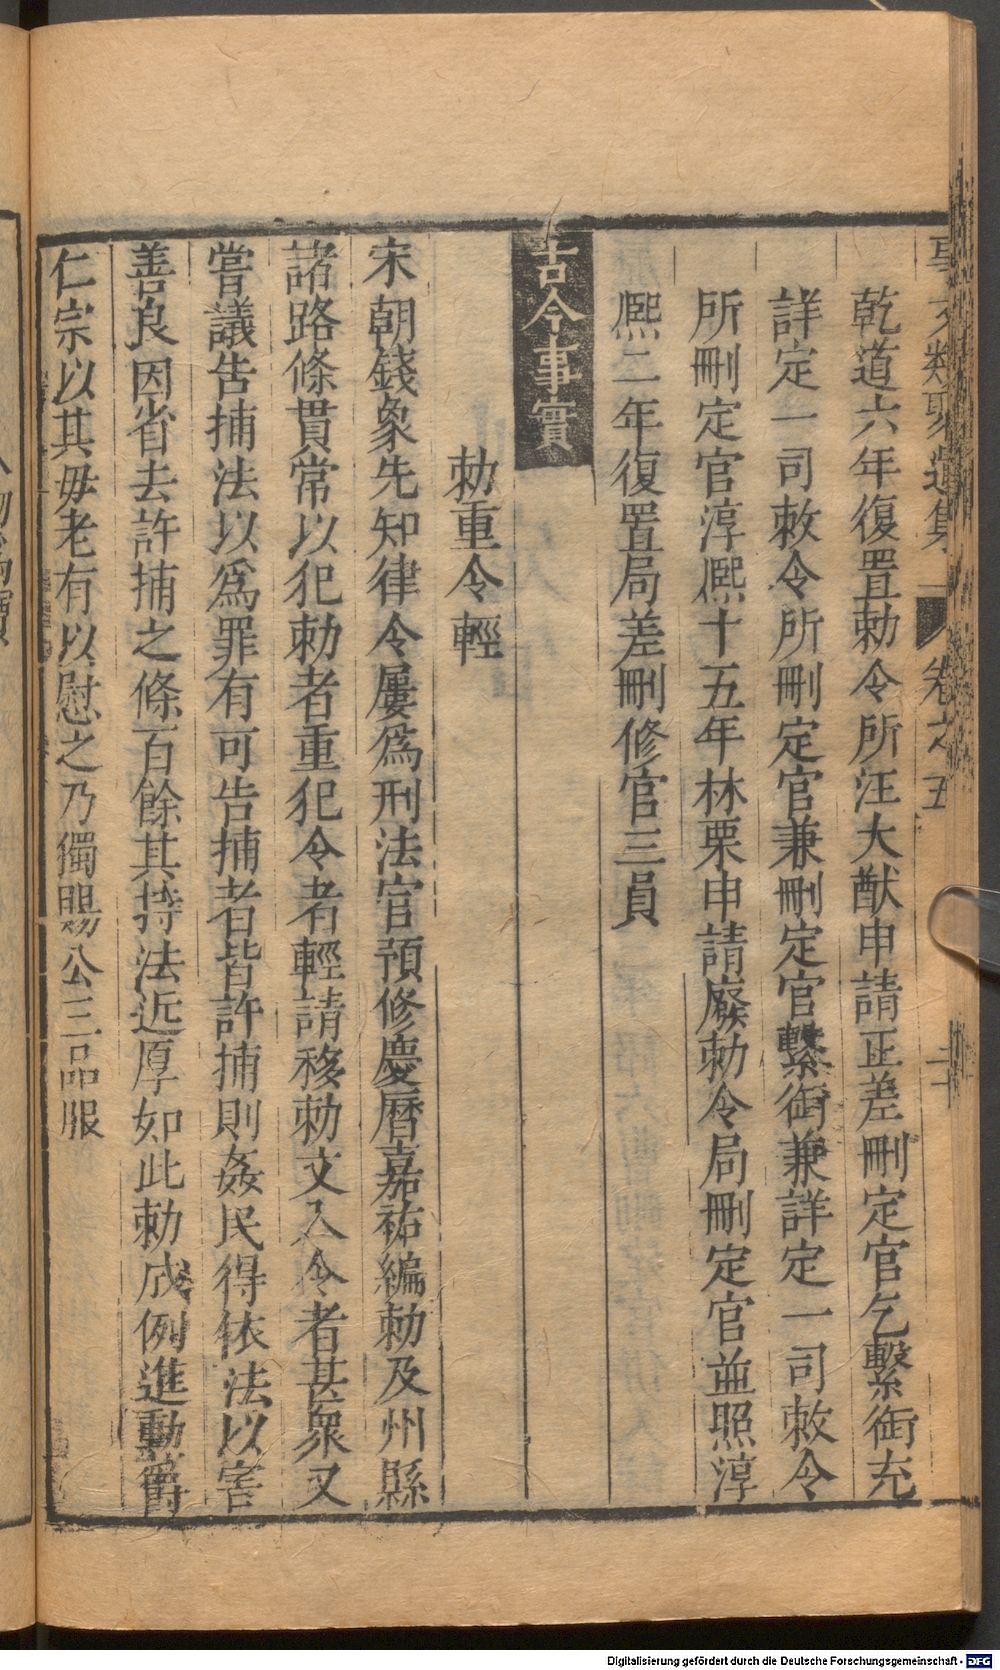 事文類聚遺集 卷之五 二
乾道六年復置勅令所汪大猷申請正差刪定官乞繫銜充
詳定一司敕令所刪定官兼刪定官繫銜兼詳定一司敕令
所刪定官淳熈十五年林栗申請廢勅令局刪定官並照淳
熈二年復置局差刪修官三員
古今事實
勅重令輕
宋朝錢象先知律令屢爲刑法官預修慶曆嘉祐編勅及州縣
諸路條貫常以犯勅者重犯令者輕請移勅文入令者甚衆又
嘗議告捕法以爲罪有可告捕者皆許捕則姦民得依法以害
善良因省去許捕之條百餘其持法近厚如此勅成例進勳爵
仁宗以其毋老有以慰之乃獨賜公三品服
Digitalisierung gefördert durch die Deutsche Forschungsgemeinschaft - DFG